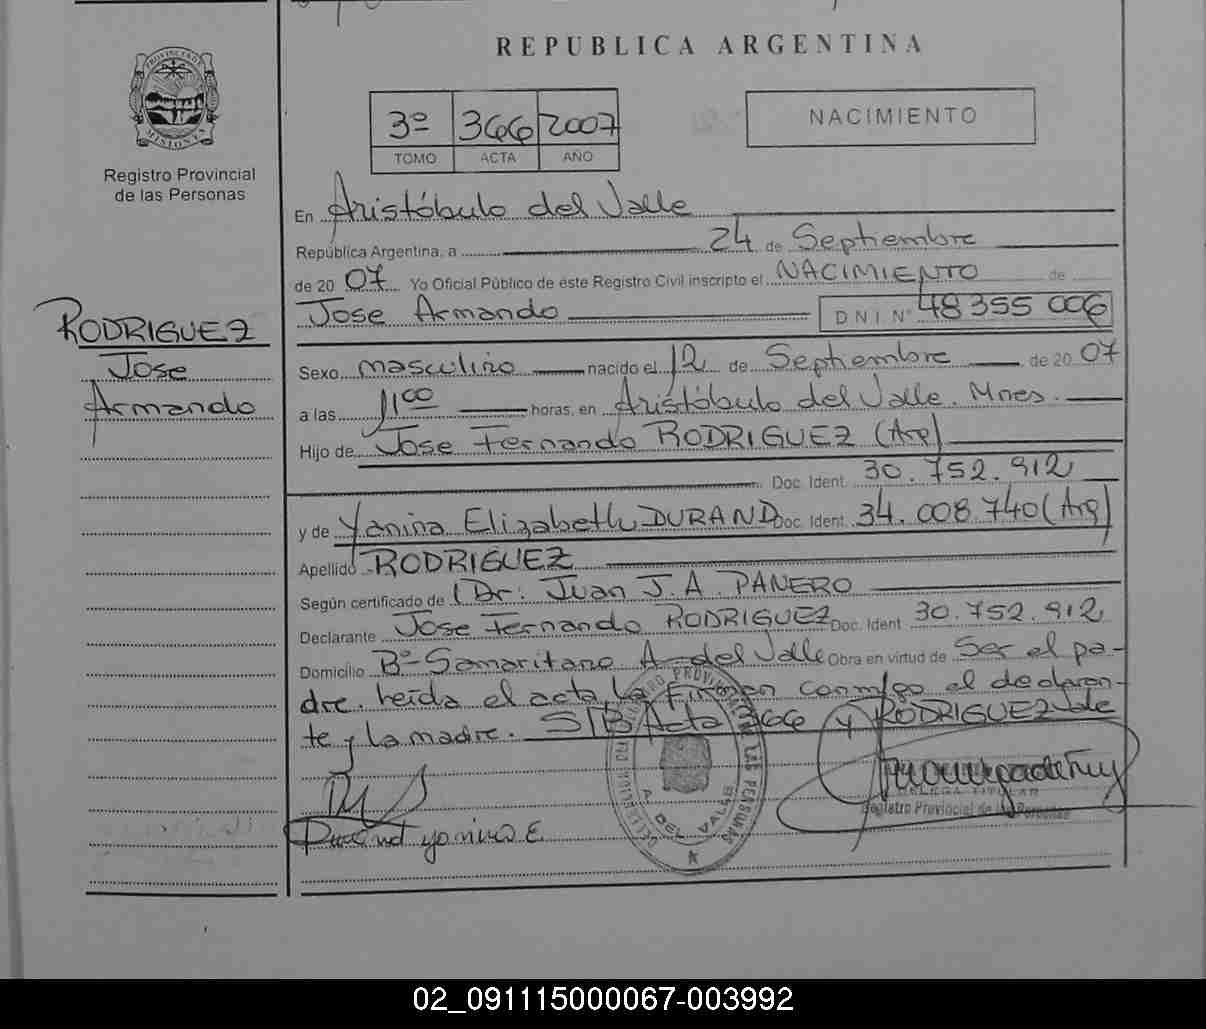 REPUBLICA ARGENTINA
PROVINCIA DE
MISIONES
Registro Provincial
de las Personas
3º 366 2007
TOMO ACTA AÑO
NACIMIENTO
En Aristóbulo del Valle
República Argentina, a 24 de Septiembre
de 20 07 Yo Oficial Público de éste Registro Civil inscripto el NACIMIENTO de
Jose Armando DNI Nº 48355006
RODRIGUEZ
Jose
Armando
Sexo masculino nacido el 12 de Septiembre de 20 07
a las 11 00 horas, en Aristóbulo del Valle. Mnes.
Hijo de Jose Fernando RODRIGUEZ (Arg)
Doc. Ident. 30.752.912
y de Yanina Elizabeth DURAND Doc. Ident. 34.008.740 (Arg)
Apellido RODRIGUEZ
Según certificado de Dr: Juan J.A. PANERO
Declarante Jose Fernando RODRIGUEZ Doc. Ident. 30.752.912
Domicilio Bº Samaritano A. del Valle Obra en virtud de Ser el pa-
dre. Leída el acta la Firman conmigo el declaran-
te y la madre. S/B Acta 366 y RODRIGUEZ Vale
yanina E
DEL VALLE
TITULAR
Registro Provincial de las Personas
02_091115000067-003992